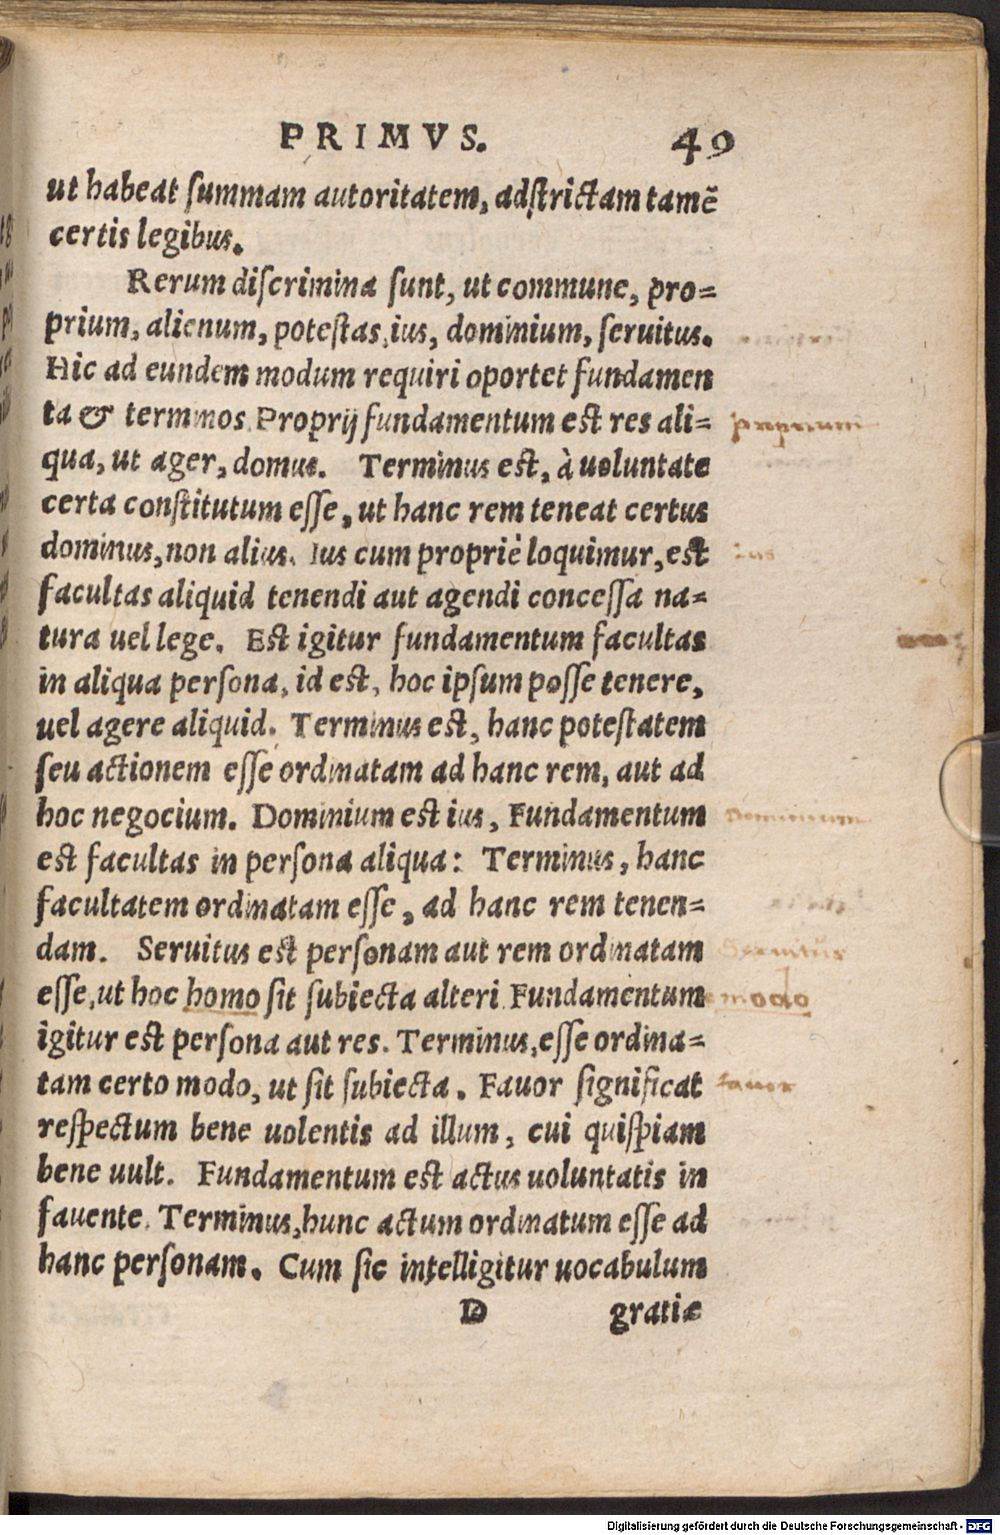 PRIMVS. 49
ut habeat ſummam autoritatem, adſtrictam tamē
certis legibus.
Rerum diſcrimina ſunt, ut commune, pro=
prium, alienum, poteſtas, ius, dominium, ſeruitus.
Hic ad eundem modum requiri oportet fundamen
ta & terminos. Proprij fundamentum eſt res ali=
proprium
qua, ut ager, domus. Terminus eſt, à uoluntate
certa conſtitutum eſſe, ut hanc rem teneat certus
dominus, non alius. Ius cum propriè loquimur, eſt
Ius
facultas aliquid tenendi aut agendi conceſſa na=
tura uel lege. Eſt igitur fundamentum facultas
in aliqua perſona, id eſt, hoc ipſum poſſe tenere,
uel agere aliquid. Terminus eſt, hanc poteſtatem
ſeu actionem eſſe ordinatam ad hanc rem, aut ad
hoc negocium. Dominium eſt ius, Fundamentum
Dominium
eſt facultas in perſona aliqua: Terminus, hanc
facultatem ordinatam eſſe, ad hanc rem tenen=
dam. Seruitus eſt perſonam aut rem ordinatam
Seruitus
eſſe, ut hoc homo ſit ſubiecta alteri. Fundamentum
modo
igitur eſt perſona aut res. Terminus, eſſe ordina=
tam certo modo, ut ſit ſubiecta. Fauor ſignificat
fauor
reſpectum bene uolentis ad illum, cui quiſpiam
bene uult. Fundamentum eſt actus uoluntatis in
fauente. Terminus, hunc actum ordinatum eſſe ad
hanc perſonam. Cum ſic intelligitur uocabulum
D gratiæ
Digitalisierung gefördert durch die Deutsche Forschungsgemeinschaft - DFG